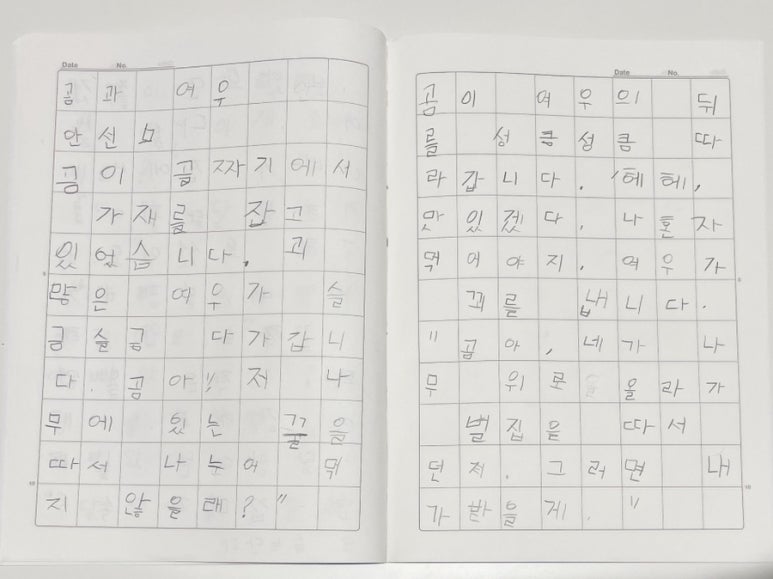 Date No.
곰과 여우
안선보
곰이 골짜기에서
가재를 잡고
있었습니다. 괴
많은 여우가 슬
금슬금 다가갑니
다. 곰아" 저 나
무에 있는 꿀을
따서 나누어 먹
지 않을래?"
Date No.
곰이 여우의 뒤
를 성큼성큼 따
라갑니다. '헤헤,
맛있겠다. 나혼자
먹어야지. 여우가
꾀를 냅니다.
"곰아, 네가 나
무 위로 올라가
벌집을 따서
던져. 그러면 내
가 받을게."